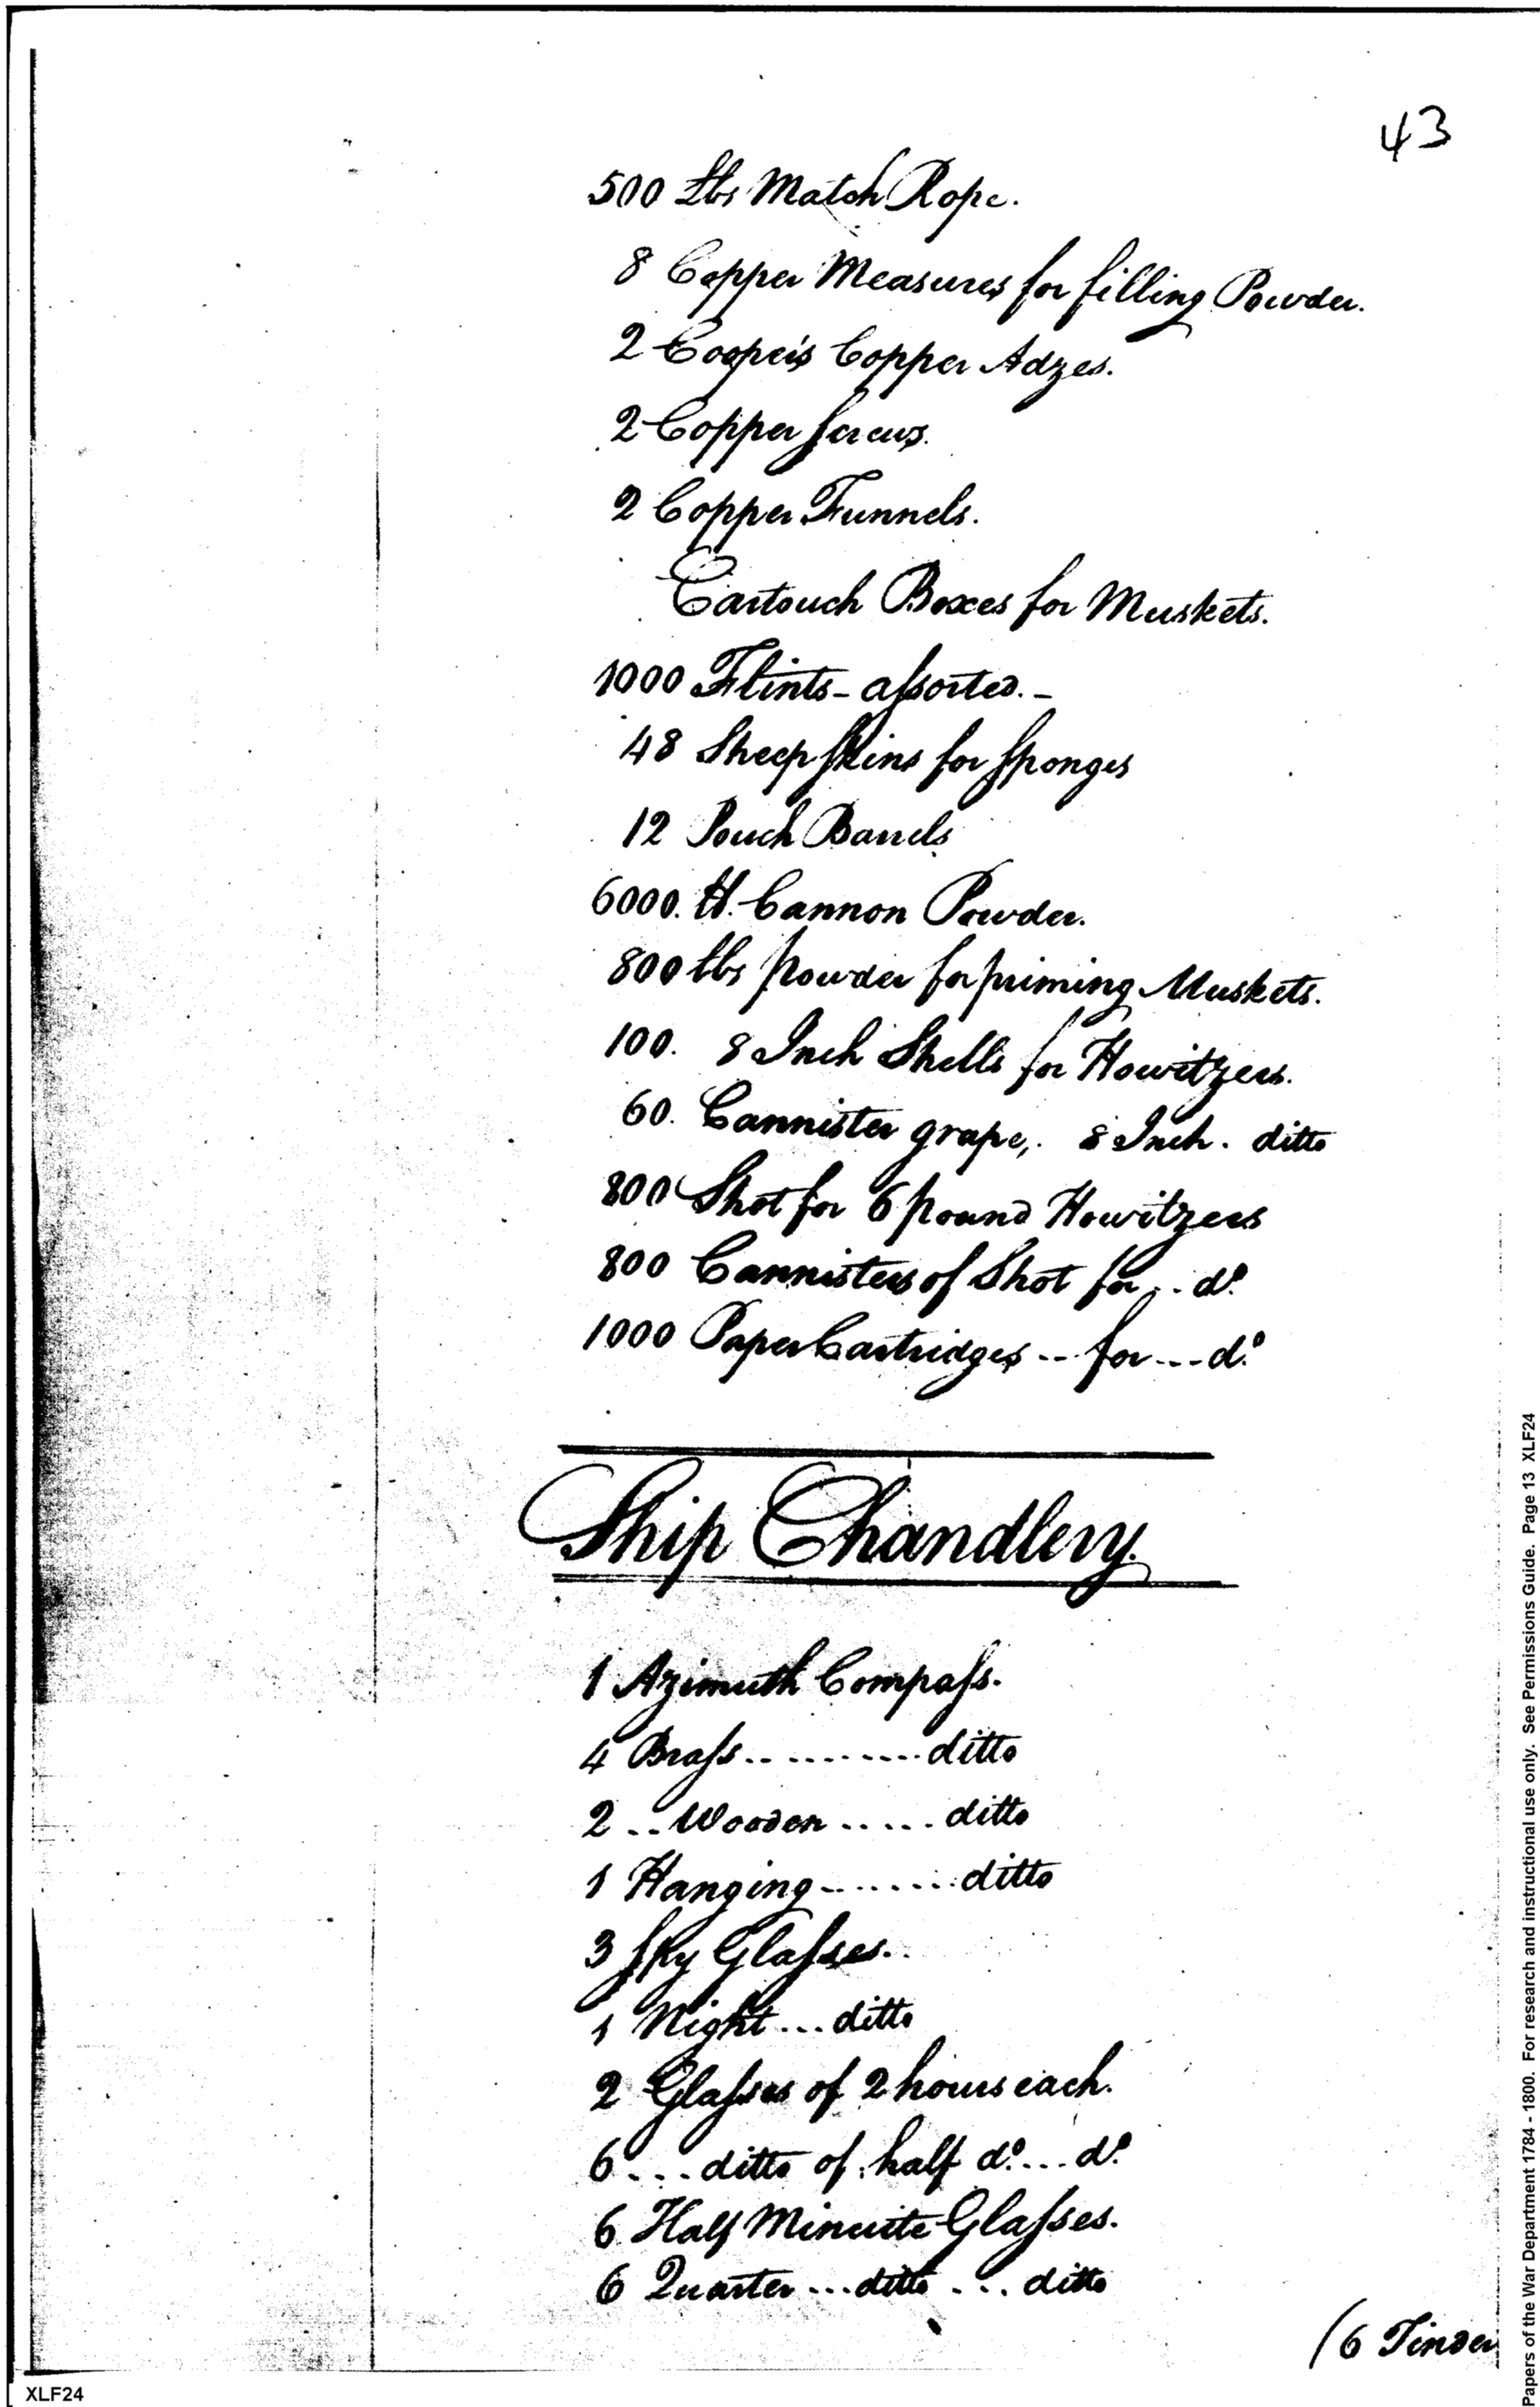 43
500 Lbs Match Rope.
8 Copper Measures for filling Powder.
2 Cooper's Copper Adzes.
2 Copper Screws.
2 Copper Funnels.
Cartouch Boxes for Muskets.
1000 Flints - assorted. -
48 Sheep Skins for Sponges
12 Pouch Barrels
6000. lb. Cannon Powder.
800 lbs powder for priming Muskets.
100. 8 Inch Shells for Howitzers.
60. Cannister grape, 8 Inch. ditto
800 Shot for 6 pound Howitzers
800 Cannisters of Shot for .. do.
1000 Paper Cartridges -- for --- do.
Ship Chandlery.
1 Azimuth Compass.
4 Brass ........... ditto
2 .. Wooden ..... ditto
1 Hanging ........ ditto
3 Spy Glasses.
1 Night ... ditto
2 Glasses of 2 hours each.
6 ... ditto of half do. ... do.
6 Half Minuite Glasses.
6 Quarter ... ditto ... ditto
(6 Tinder
XLF24
Papers of the War Department 1784 - 1800. For research and instructional use only. See Permissions Guide. Page 13 XLF24